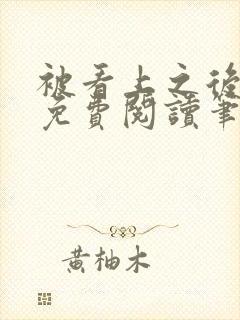 被看上之後
免費閱讀筆
黃柚木